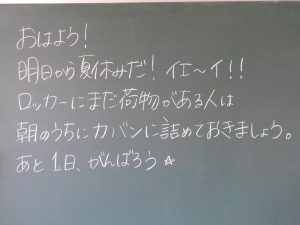 おはよう!
明日から夏休みだ! イエ〜イ!!
ロッカーにまだ荷物がある人は
朝のうちにカバンに詰めておきましょう。
あと1日、がんばろう☆